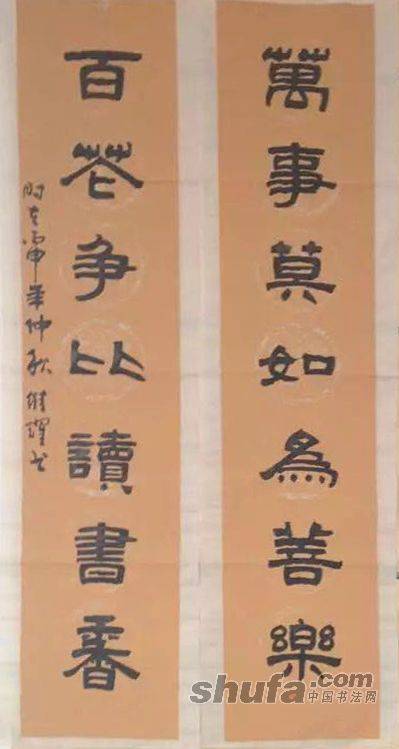 萬事莫如為善樂
百花争比讀書香
时在丙申年仲秋 继耀书
shufa.com
中国书法网